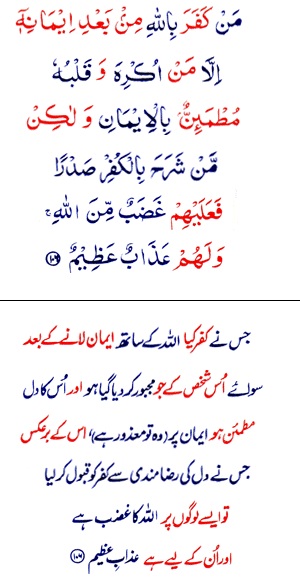 مَنْ كَفَرَ بِاللّٰهِ مِنْۢ بَعْدِ اِيْمَانِهٖۤ
اِلَّا مَنْ اُكْرِهَ وَ قَلْبُهٗ
مُطْمَىِٕنٌّۢ بِالْاِيْمَانِ وَ لٰكِنْ
مَّنْ شَرَحَ بِالْكُفْرِ صَدْرًا
فَعَلَيْهِمْ غَضَبٌ مِّنَ اللّٰهِ ۚ
وَ لَهُمْ عَذَابٌ عَظِيْمٌ ﴿۱۰۶﴾
جس نے کفر کیا اللہ کے ساتھ ایمان لانے کے بعد
سوائے اُس شخص کے جو مجبور کر دیا گیا ہو اور اُس کا دل
مطمئن ہو ایمان پر (وہ تو معذور ہے)، اس کے برعکس
جس نے دل کی رضا مندی سے کفر کو قبول کر لیا
تو ایسے لوگوں پر اللہ کا غضب ہے
اور اُن کے لیے ہے عذابِ عظیم ﴿۱۰۶﴾